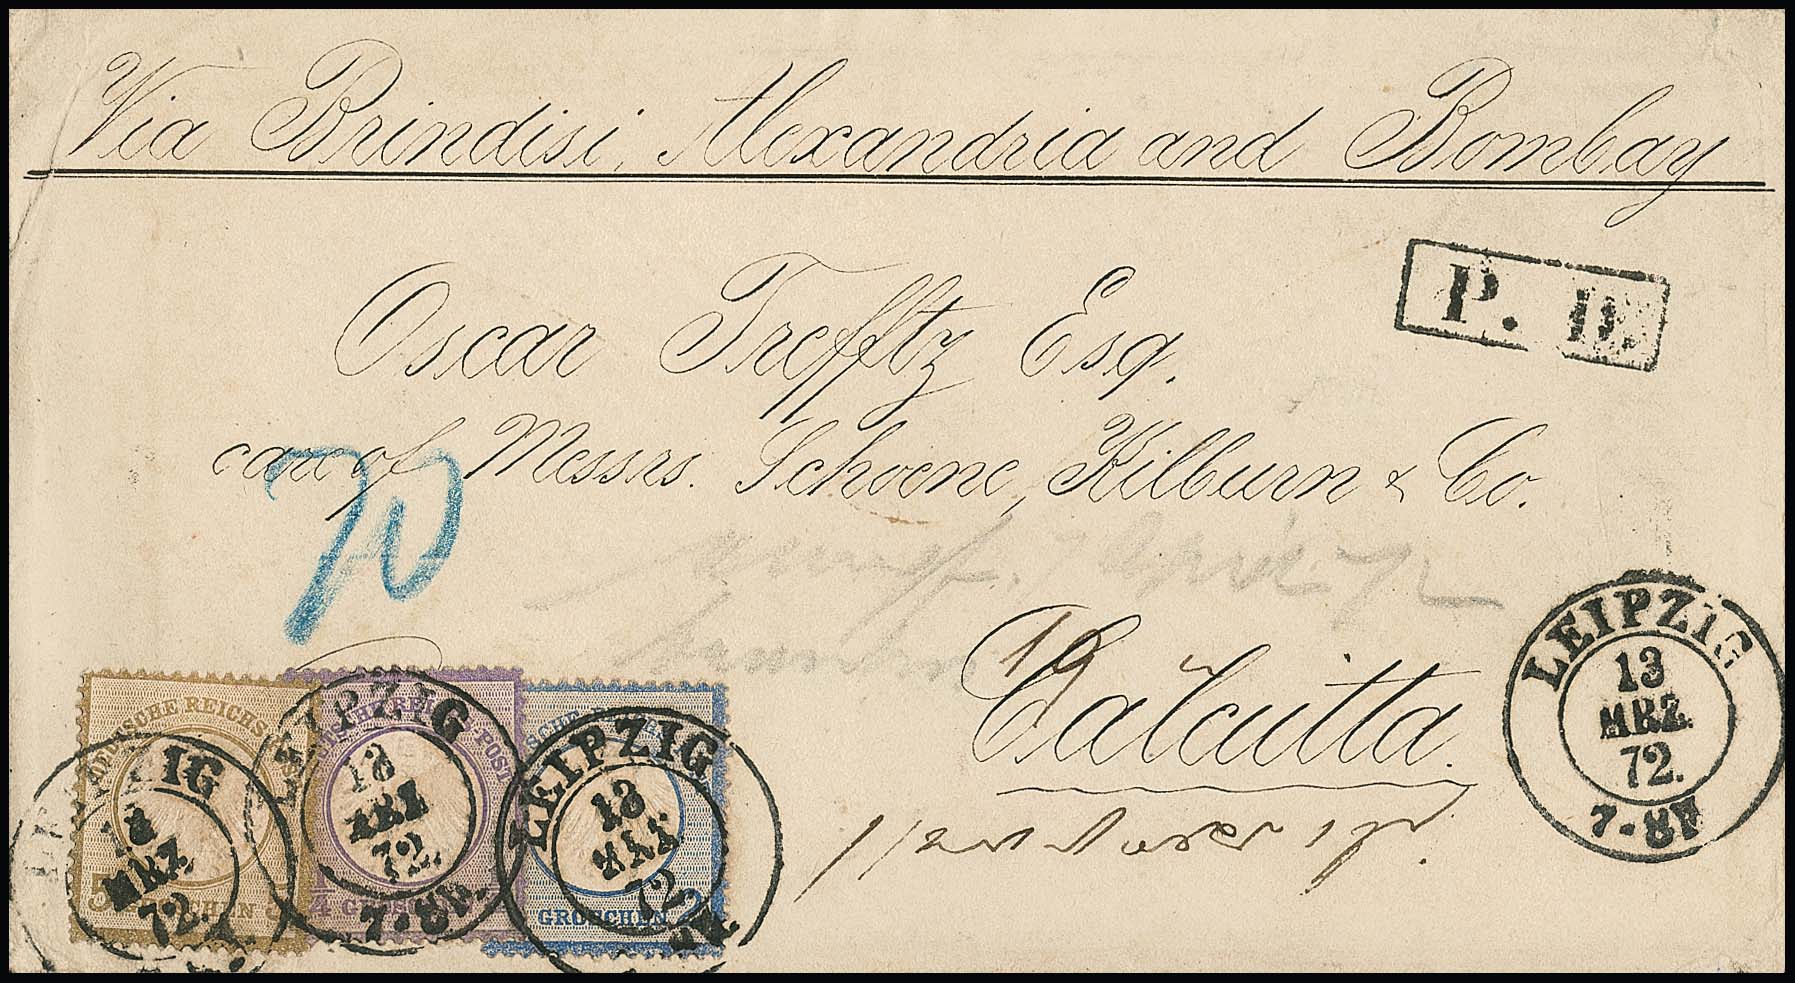 Via Brindisi, Alexandria and Bombay
P. D.
Oscar Trefftz Esq.
care of Messrs. Schoene, Kilburn & Co.
70
Calcutta.
LEIPZIG
13
MRZ.
72.
7-8N
DEUTSCHE REICHS
5 GROSCHEN 5
LEIPZIG
13
MRZ
72.
DEUTSCHE REICHS-POST
1/4 GROSCHEN
LEIPZIG
13
MRZ
72.
7-8N.
GROSCHEN 2
LEIPZIG
13
MRZ
72.